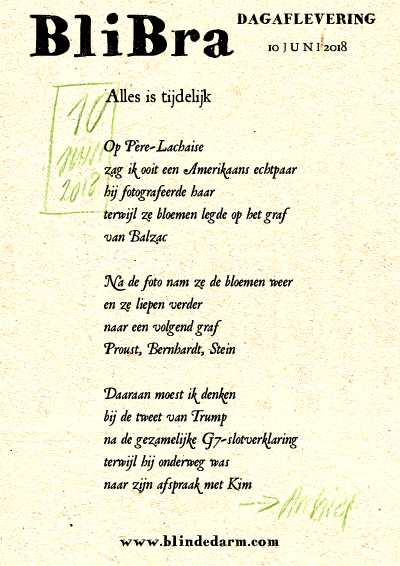 BliBra
DAGAFLEVERING
10 JUNI 2018
Alles is tijdelijk
10
juni
2018
Op Père-Lachaise
zag ik ooit een Amerikaans echtpaar
hij fotografeerde haar
terwijl ze bloemen legde op het graf
van Balzac
Na de foto nam ze de bloemen weer
en ze liepen verder
naar een volgend graf
Proust, Bernhardt, Stein
Daaraan moest ik denken
bij de tweet van Trump
na de gezamelijke G7-slotverklaring
terwijl hij onderweg was
naar zijn afspraak met Kim
→ Archief
www.blindedarm.com